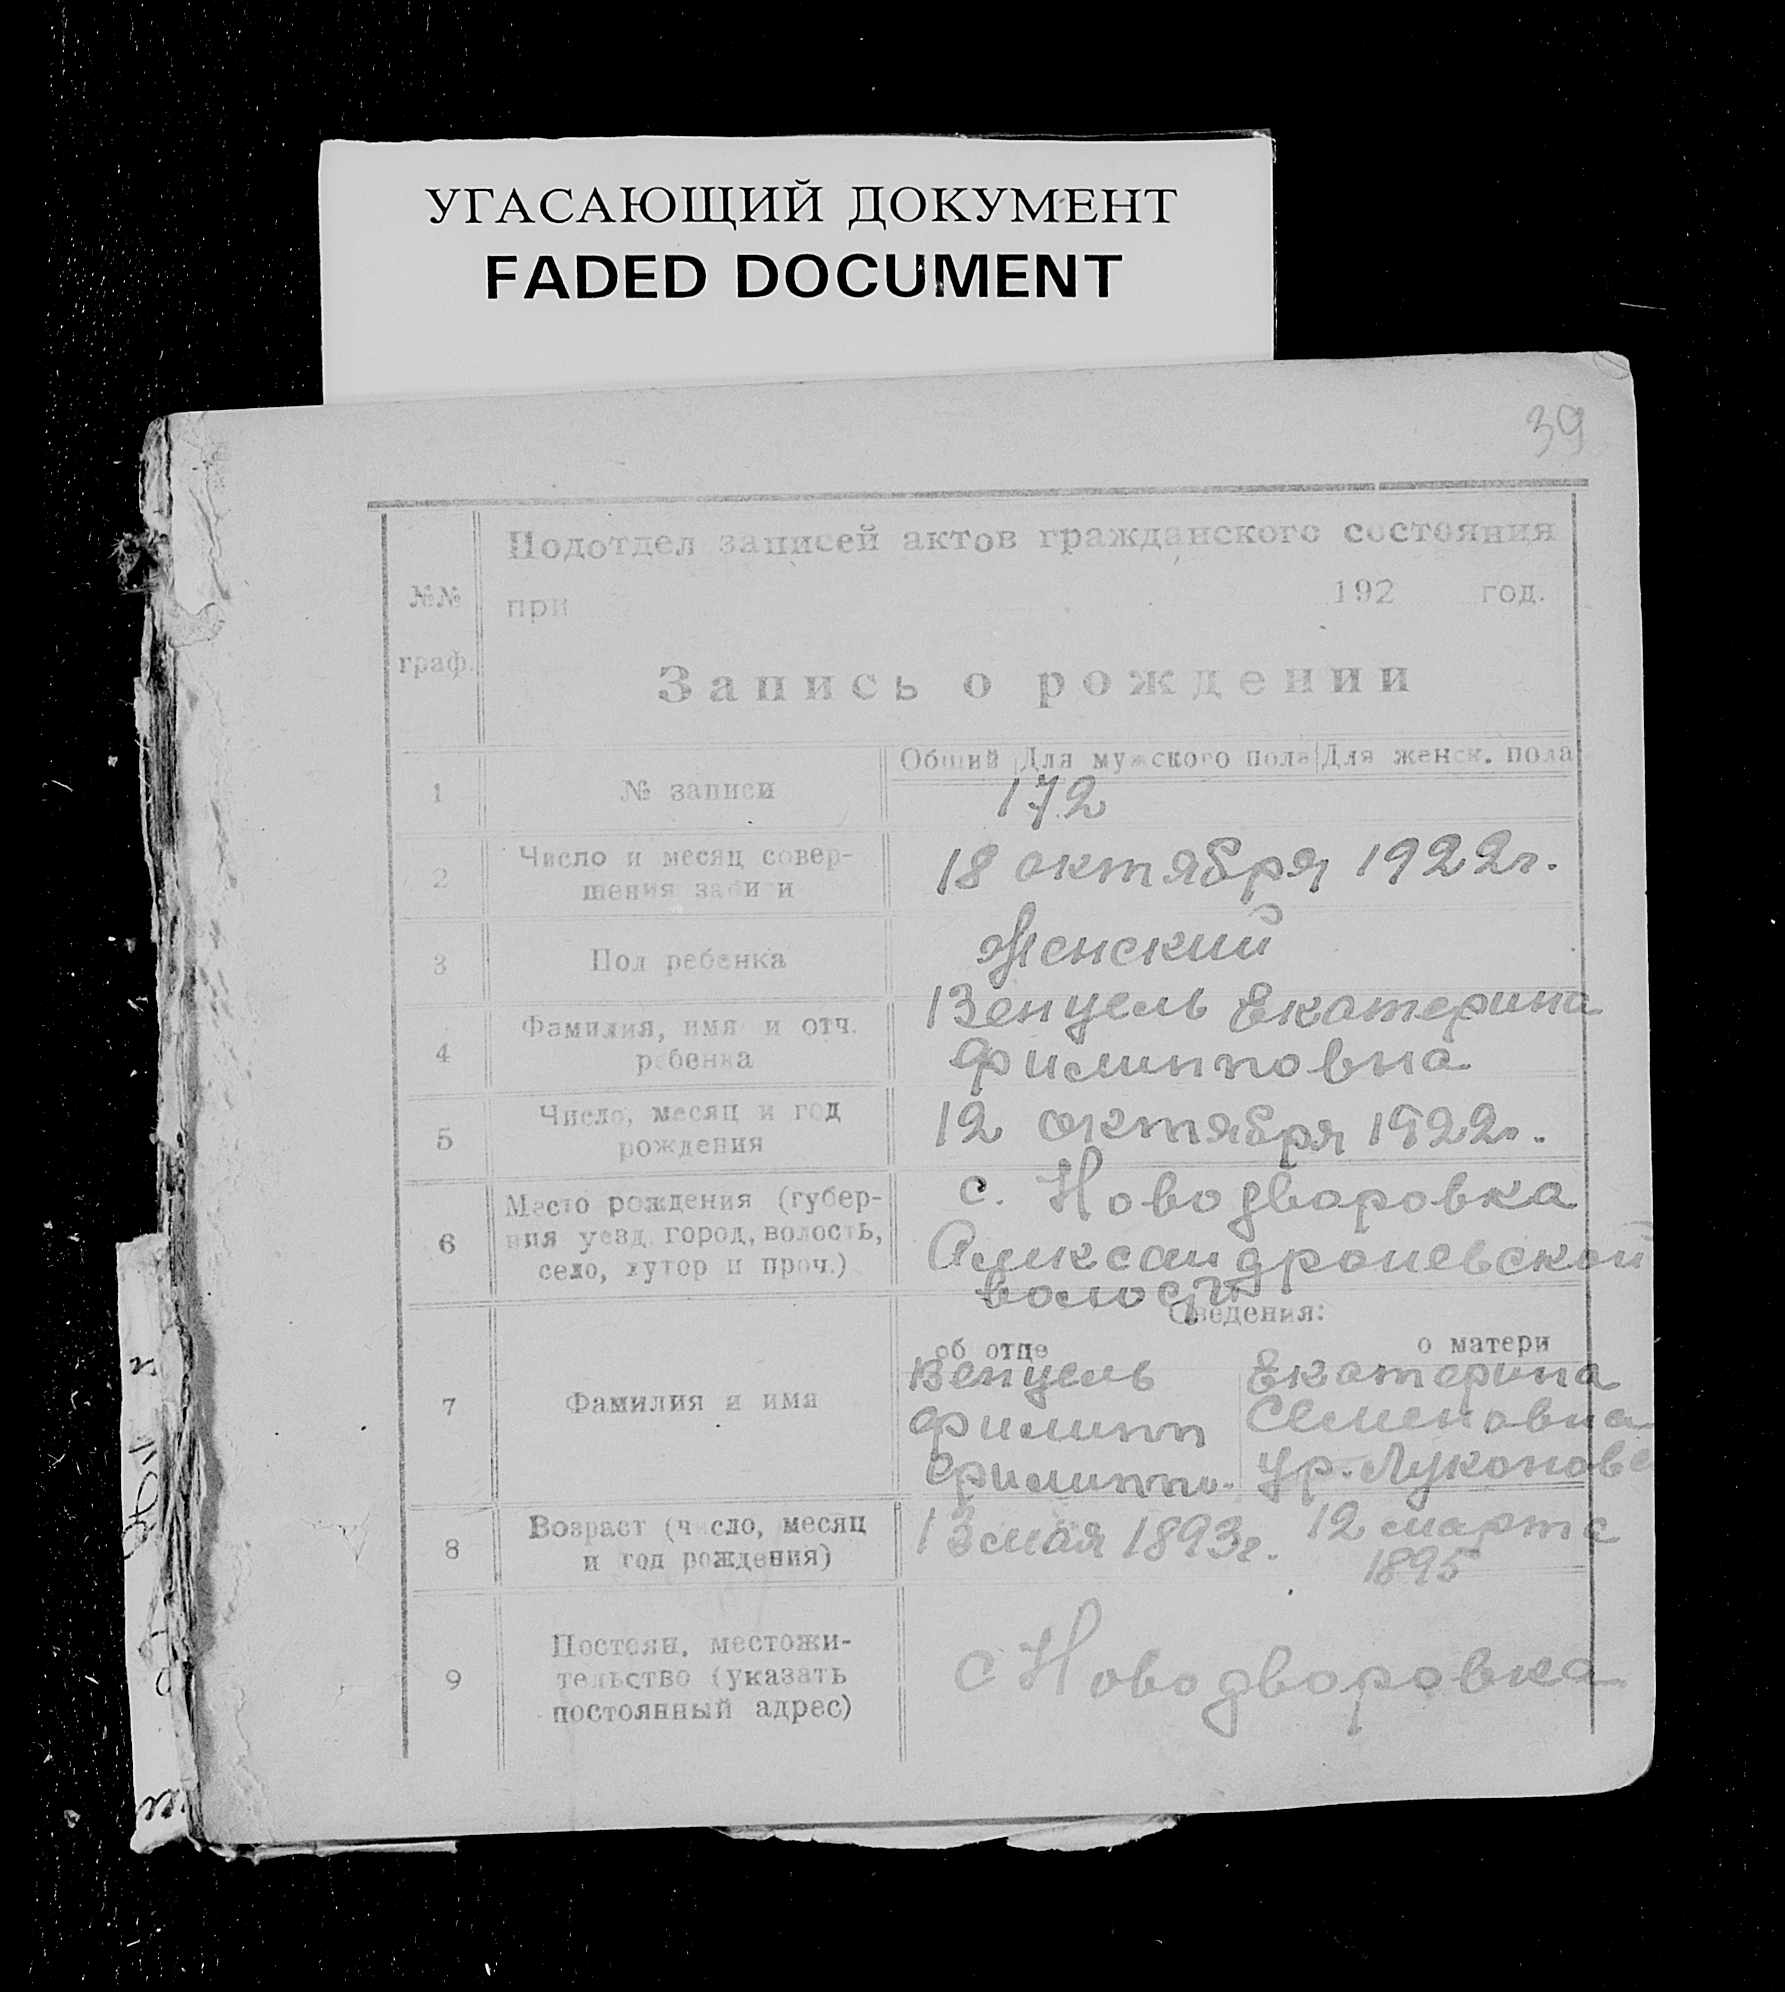 УГАСАЮЩИЙ ДОКУМЕНТ
FADED DOCUMENT
39
№№ граф.
Подотдел записей актов гражданского состояния
при 192 год.
Запись о рождении
Общий Для мужского пола Для женск. пола
1 № записи 172
2 Число и месяц совер-
шения записи
18 октября 1922г.
3 Пол ребенка Женский
4 Фамилия, имя и отч.
ребенка
Венцель Екатерина
Филипповна
5 Число, месяц и год
рождения
12 октября 1922г.
6 Место рождения (губер-
ния уезд, город, волость,
село, хутор и проч.)
с. Новодворовка
Александроневской
волости
Сведения:
об отце о матери
7 Фамилия и имя
Венцель Екатерина
Филипп Семеновна
Филиппо. ур. Луконова
8 Возраст (число, месяц
и год рождения)
13 мая 1893г. 12 марта
1895
9 Постоян. местожи-
тельство (указать
постоянный адрес)
с Новодворовка